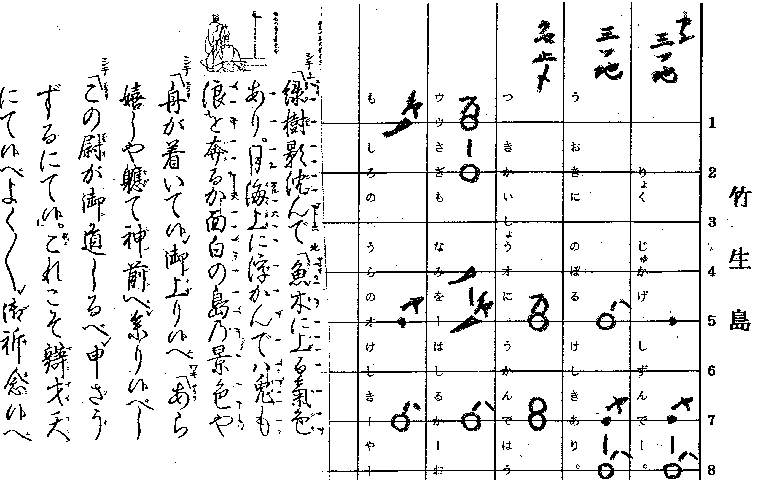 竹生島
1 2 3 4 5 6 7 8
三ツ地
りょく じゅかげ しずんでー。
三ツ地
うおきに のぼる けしきあり。
つきかいしょうオに うかんではう
ウウさぎも なみをーはしるかーお
もしろの うらのオけしきーやー
緑樹影沈んで 魚木に上る氣色
あり。月海上に浮かんでハ兎も
浪を奔るか面白の島乃景色や
舟が着いて候御上り候へ あら
嬉しや軈て神前へ参り候べし
この尉が御道しるべ申さう
ずるにて候。これこそ辨才天
にて候へよく〱御祈念候へ